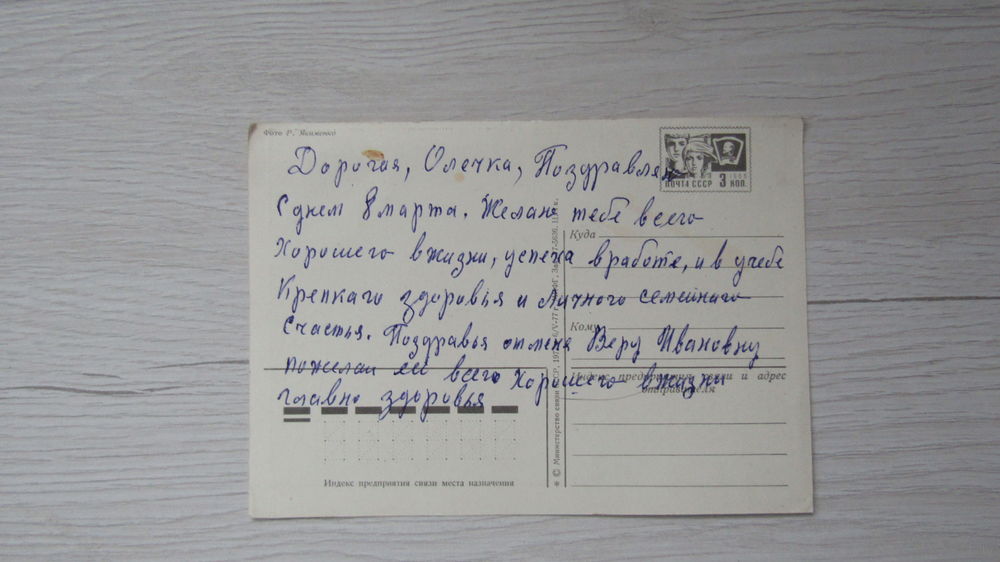 Фото Р. Якименко
ПОЧТА СССР 3 КОП.
Дорогая, Олечка, Поздравляю
С днем 8 марта. Желаю тебе всего
Хорошего в жизни, успеха в работе, и в учебе
Крепкаго здоровья и личного семейнаго
Счастья. Поздравья от меня Веру Ивановну
пожелай ей всего Хорошего в жизни
главно здоровья
Куда
Кому
Индекс предприятия связи и адрес
отправителя
Индекс предприятия связи места назначения
* © Министерство связи СССР